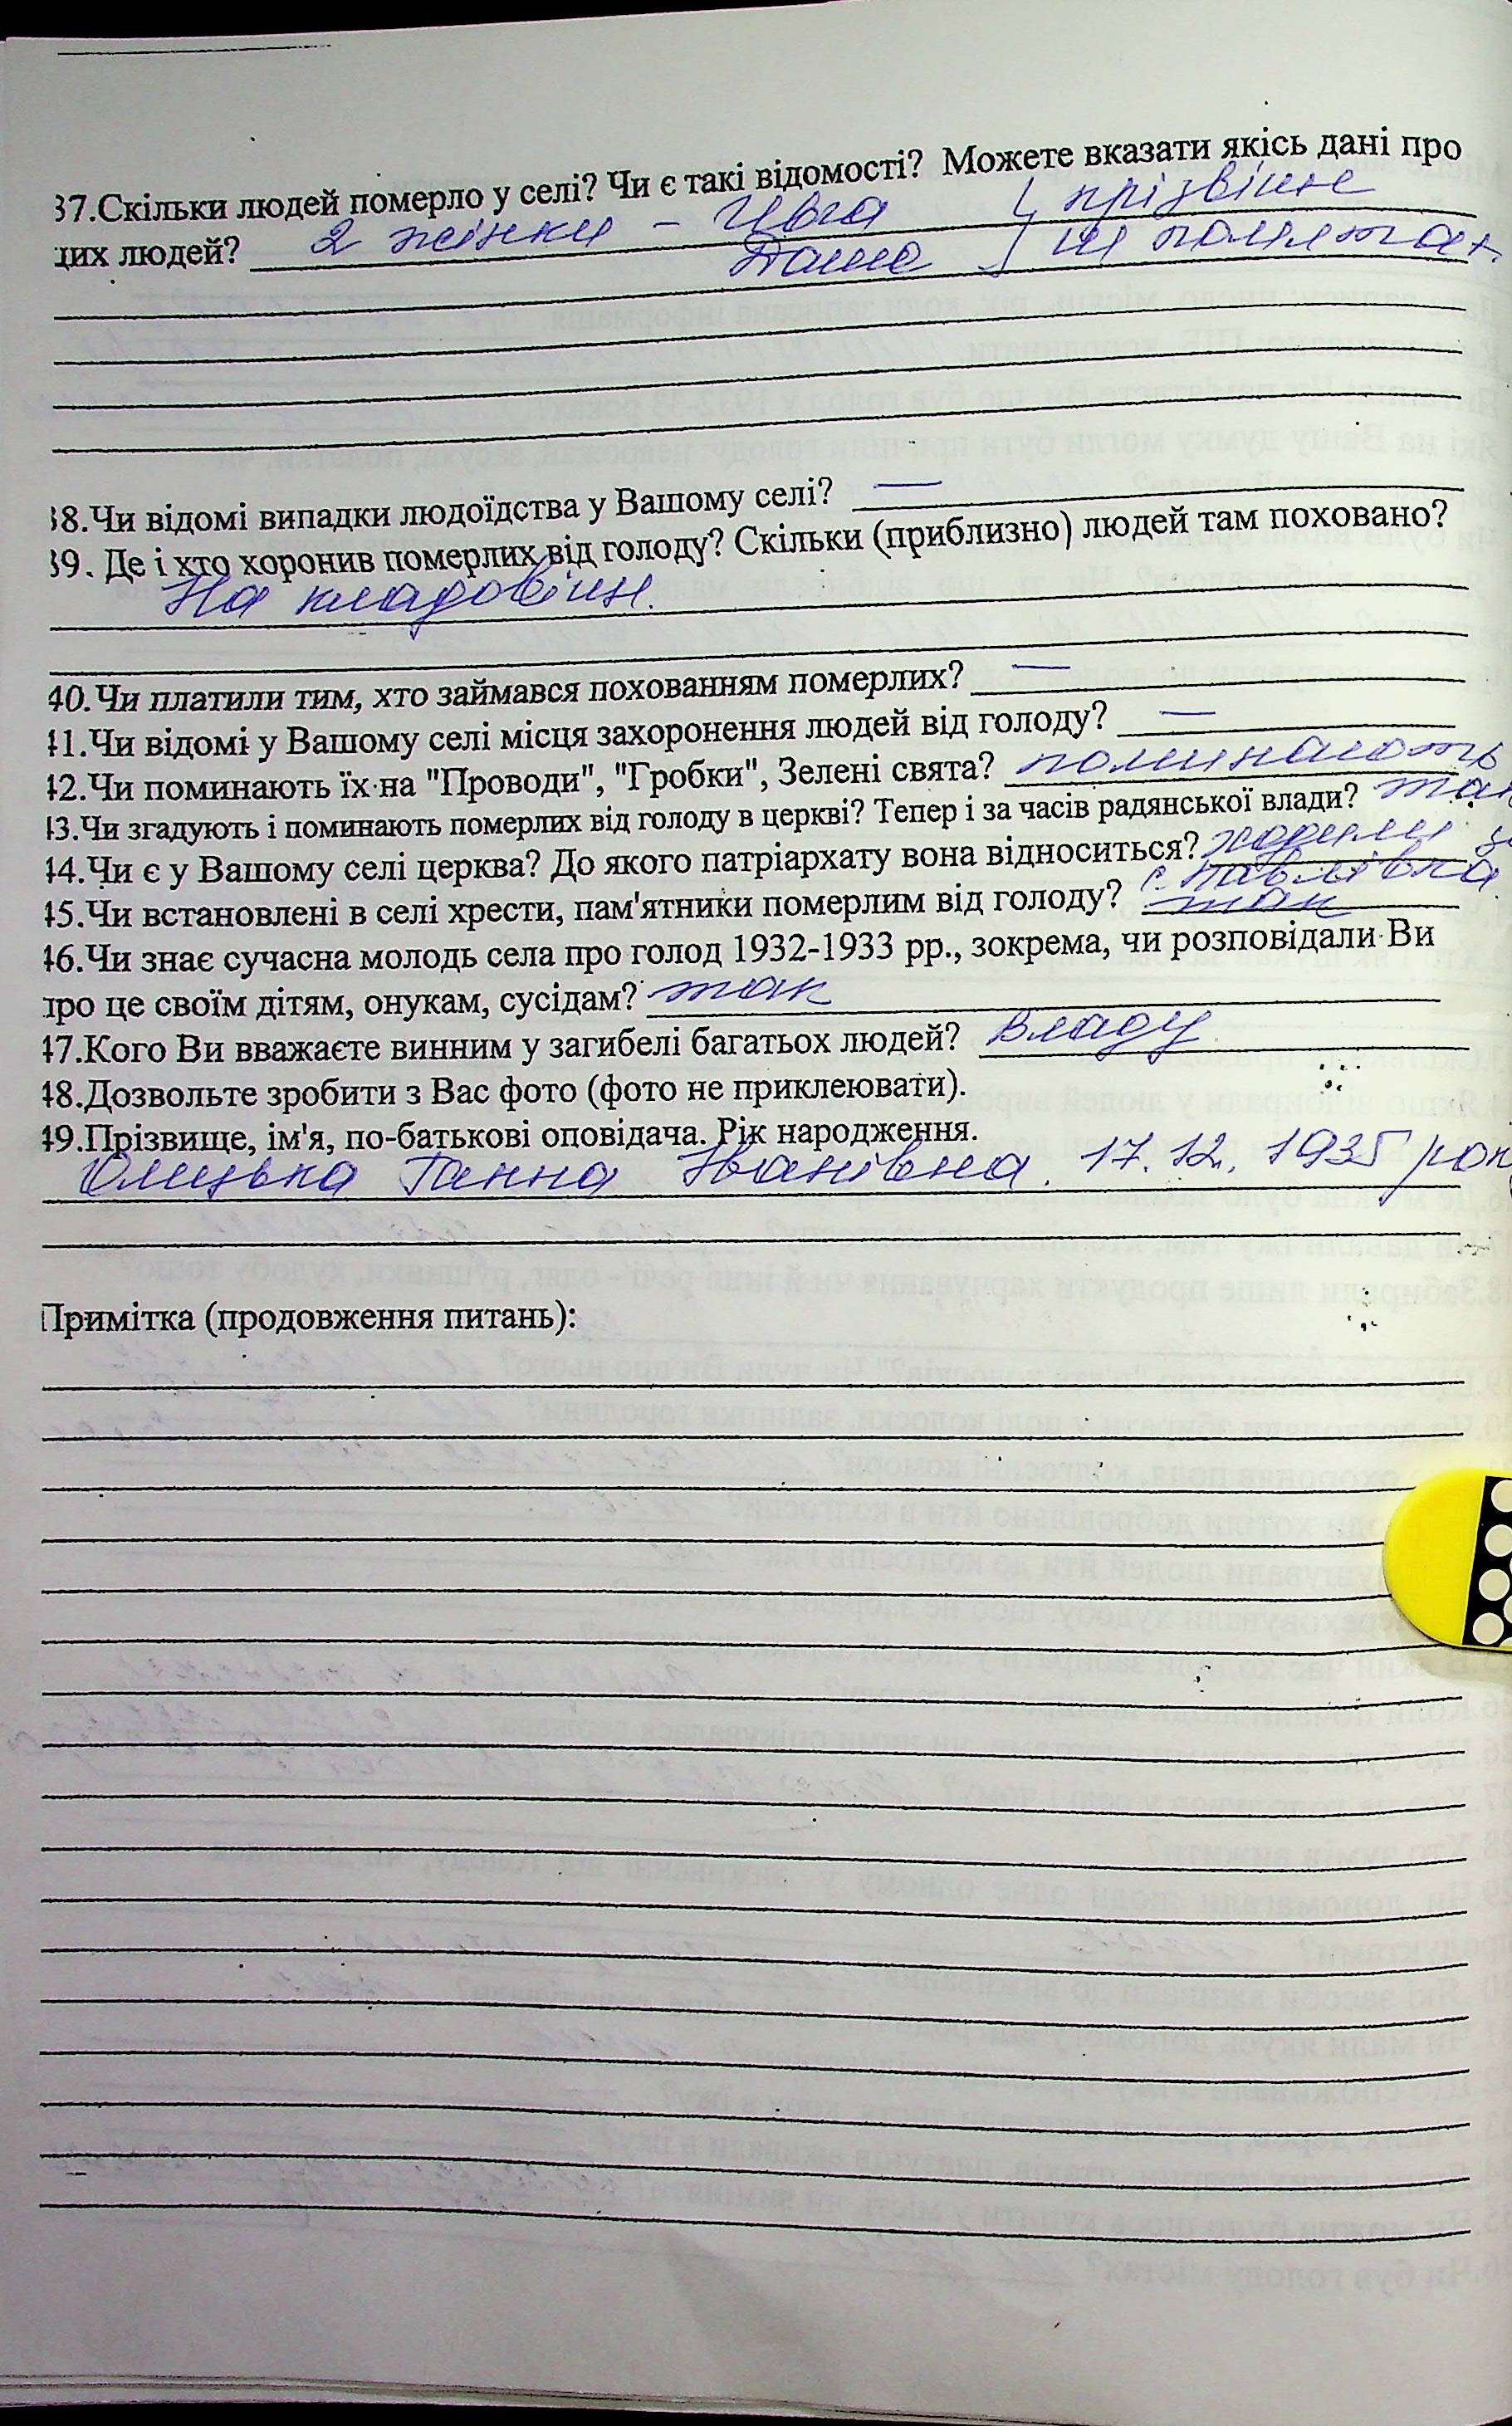 37.Скільки людей померло у селі? Чи є такі відомості? Можете вказати якісь дані про
2 жінки - Ивга } прізвіще
цих людей?
Даша } не памятає
38.Чи відомі випадки людоїдства у Вашому селі? —
39. Де і хто хоронив померлих від голоду? Скільки (приблизно) людей там поховано?
На кладовіщі.
40.Чи платили тим, хто займався похованням померлих? —
41.Чи відомі у Вашому селі місця захоронення людей від голоду? —
42.Чи поминають їх на "Проводи", "Гробки", Зелені свята? поминають
43.Чи згадують і поминають померлих від голоду в церкві? Тепер і за часів радянської влади? так
44.Чи є у Вашому селі церква? До якого патріархату вона відноситься? ходили
с. Павлівка
45.Чи встановлені в селі хрести, пам'ятники померлим від голоду? так
46.Чи знає сучасна молодь села про голод 1932-1933 рр., зокрема, чи розповідали Ви
про це своїм дітям, онукам, сусідам? так
47.Кого Ви вважаєте винним у загибелі багатьох людей? Владу
48.Дозвольте зробити з Вас фото (фото не приклеювати).
49.Прізвище, ім'я, по-батькові оповідача. Рік народження.
Олицька Ганна Іванівна. 17.12.1935 рок
Примітка (продовження питань):